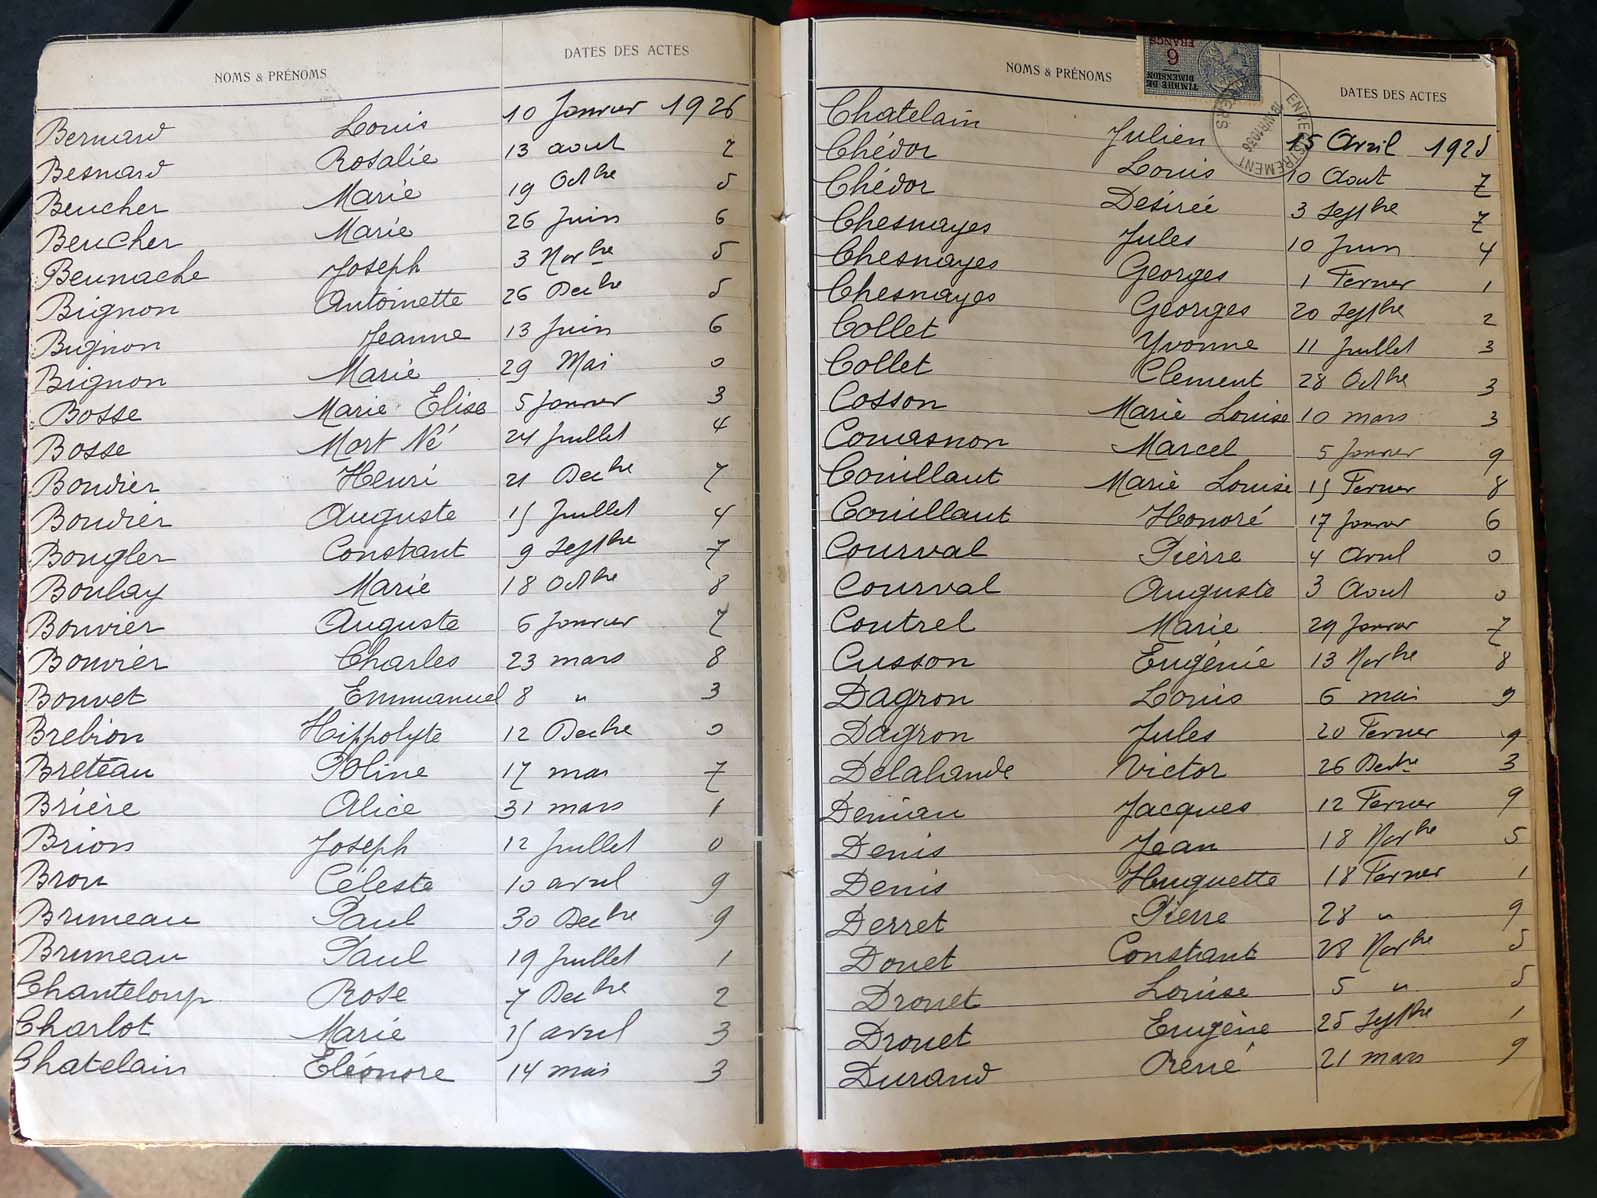 NOMS & PRÉNOMS DATES DES ACTES
Bernard Louis 10 Janvier 1926
Besnard Rosalie 13 aout 7
Beucher Marie 19 Octbre 5
Beucher Marie 26 Juin 6
Beunache Joseph 3 Novbre 5
Bignon Antoinette 26 Decbre 5
Bignon Jeanne 13 Juin 6
Bignon Marie 29 Mai 0
Bosse Marie Elise 5 Janvier 3
Bosse Mort Né 24 Juillet 4
Boudier Henri 21 Decbre 7
Boudier Auguste 15 Juillet 4
Bougler Constant 9 Septbre 7
Boulay Marie 18 Octbre 8
Bouvier Auguste 6 Janvier 7
Bouvier Charles 23 mars 8
Bouvet Emmanuel 8 " 3
Brebion Hippolyte 12 Decbre 0
Breteau Poline 17 mai 7
Brière Alice 31 mars 1
Brion Joseph 12 Juillet 0
Brou Céleste 10 avril 9
Bruneau Paul 30 Decbre 9
Bruneau Paul 19 Juillet 1
Chanteloup Rose 7 Decbre 2
Charlot Marie 15 avril 3
Chatelain Eléonore 14 mai 3
NOMS & PRÉNOMS DATES DES ACTES
TIMBRE DE DIMENSION
6 FRANCS
ENREGISTREMENT
Chatelain Julien 15 Avril 1925
Chédor Louis 10 Aout 7
Chédor Désirée 3 Septbre 7
Chesnayes Jules 10 Juin 4
Chesnayes Georges 1 Fevrier 1
Chesnayes Georges 20 Septbre 2
Collet Yvonne 11 Juillet 3
Collet Clement 28 Octbre 3
Cosson Marie Louise 10 mars 3
Couasnon Marcel 5 Janvier 9
Couillaut Marie Louise 15 Fevrier 8
Couillaut Honoré 17 Janvier 6
Courval Pierre 4 Avril 0
Courval Auguste 3 Aout 0
Coutrel Marie 29 Janvier 7
Cusson Eugénie 13 Novbre 8
Dagron Louis 6 mai 9
Dagron Jules 20 Fevrier 9
Delalande Victor 26 Decbre 3
Deniau Jacques 12 Fevrier 9
Denis Jean 18 Novbre 5
Denis Huguette 18 Fevrier 1
Derret Pierre 28 " 9
Douet Constant 28 Novbre 5
Drouet Louise 5 " 5
Drouet Eugène 25 Septbre 1
Durand René 21 mars 9